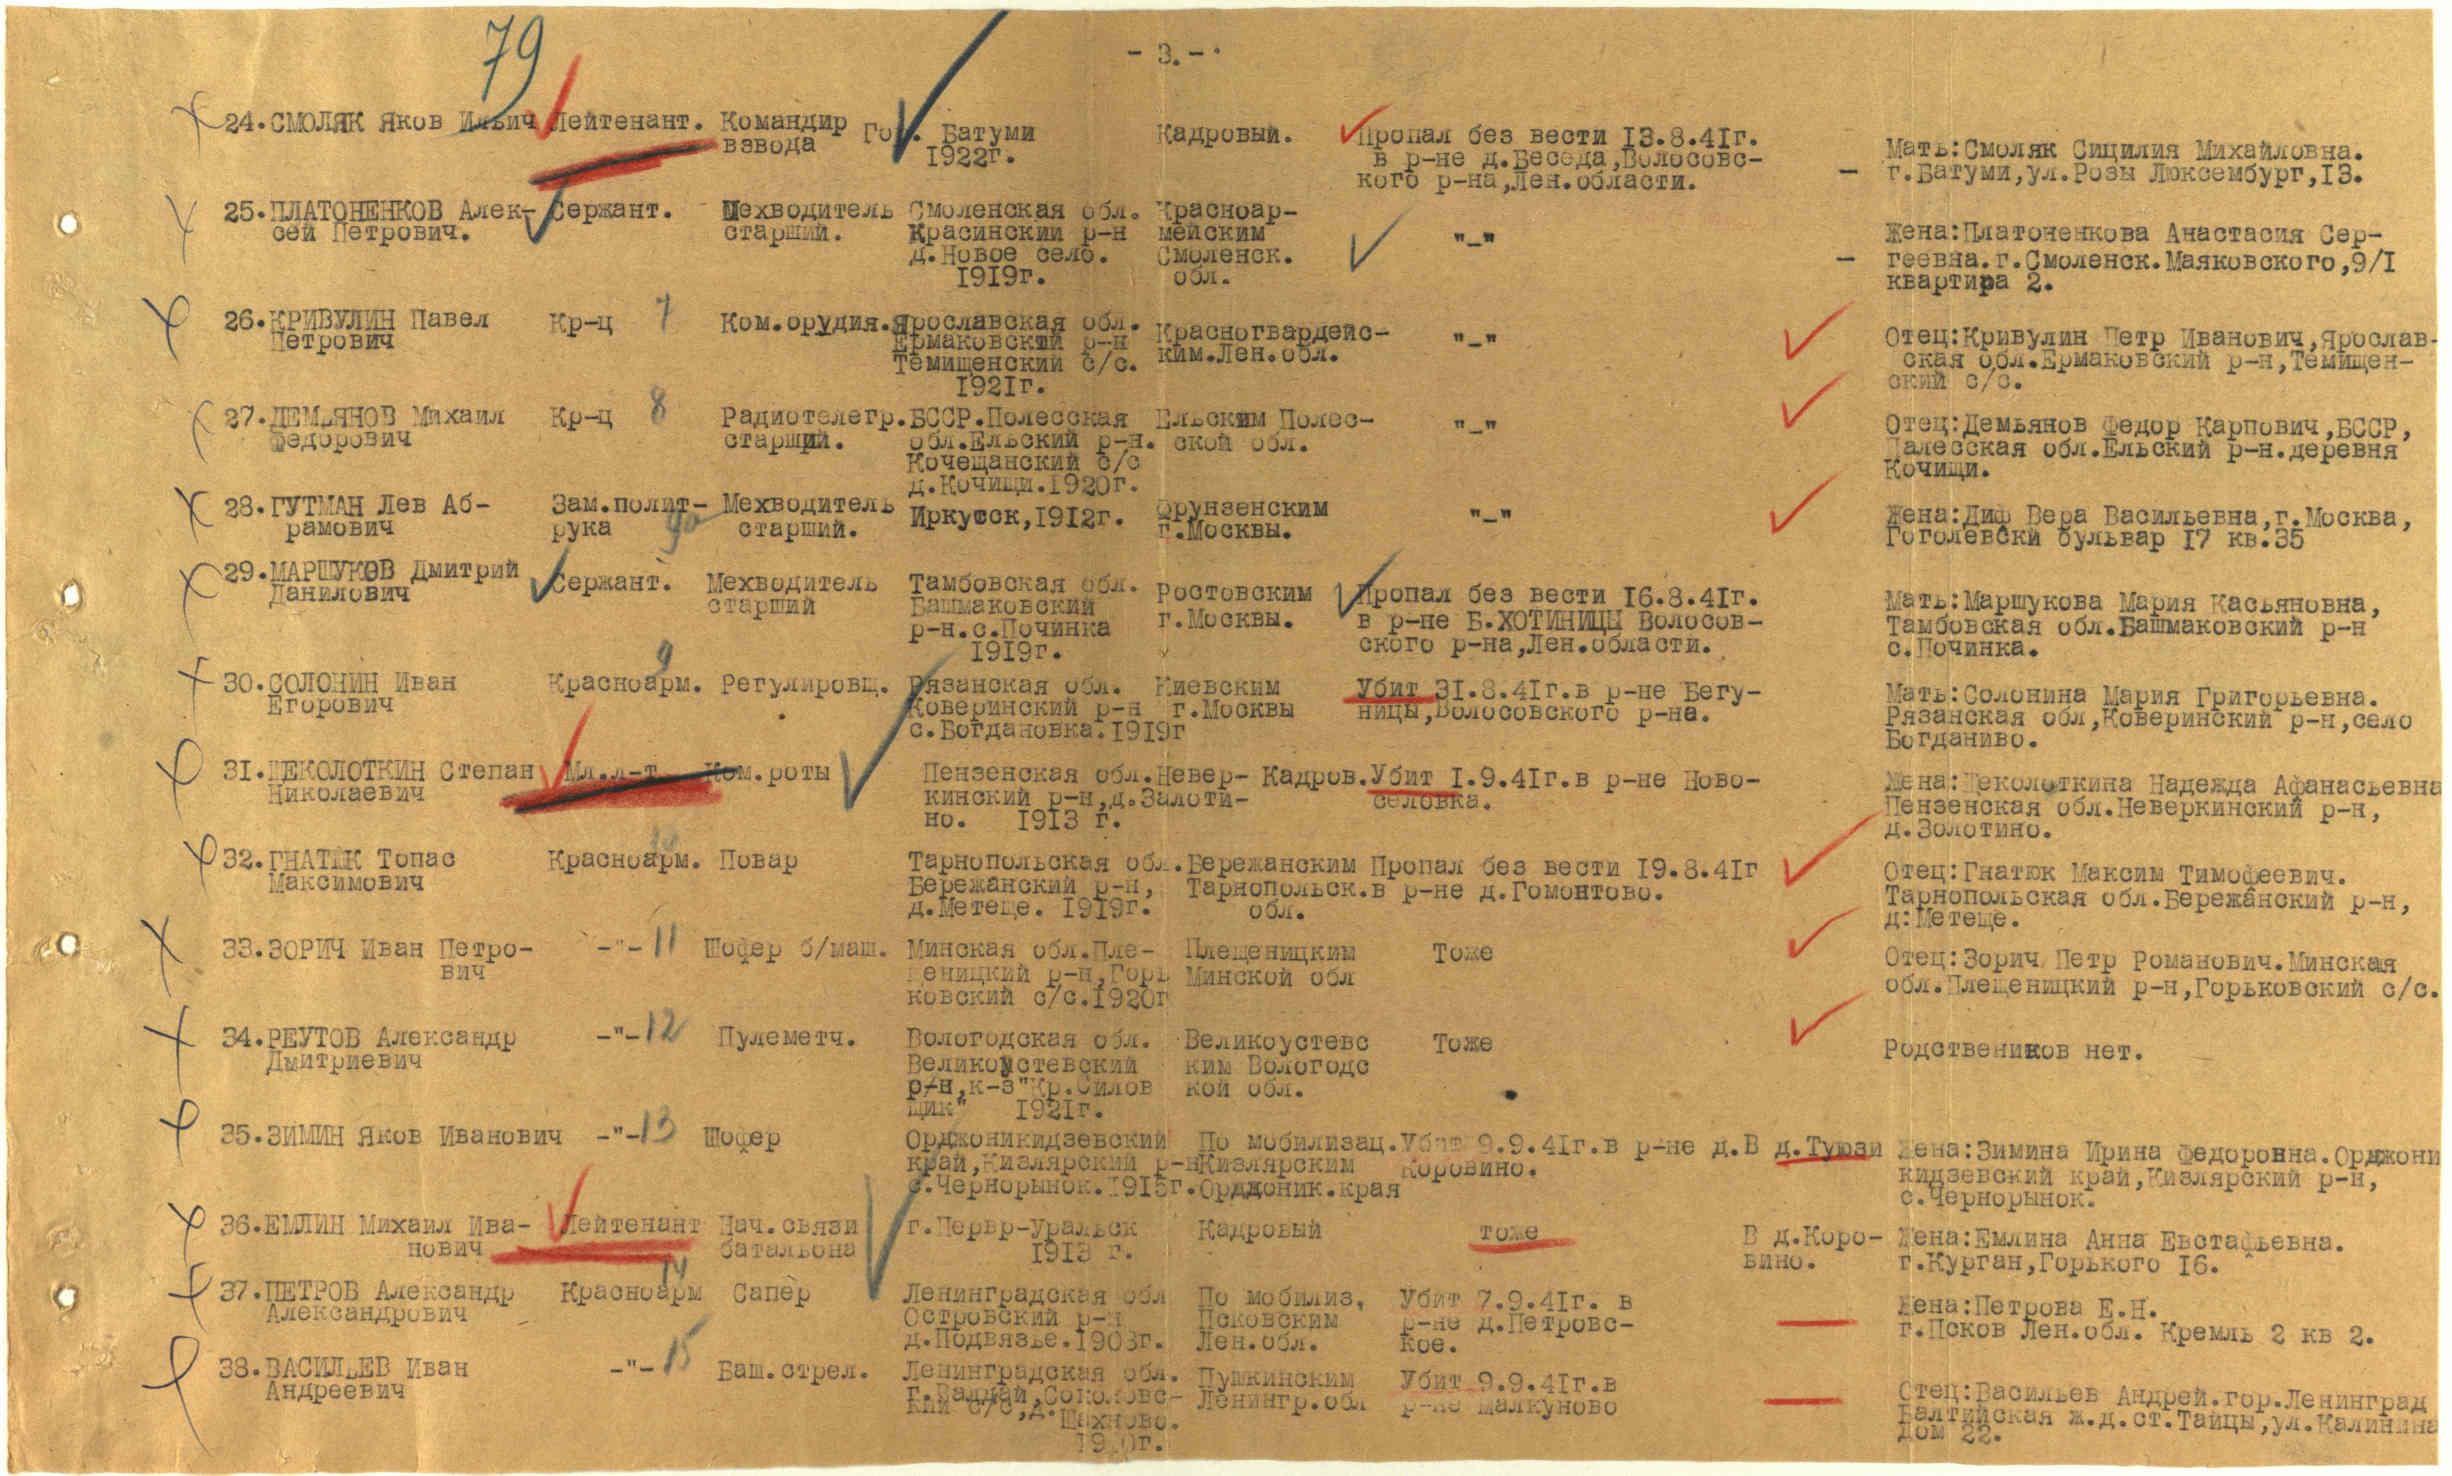 79
- 3. -
24. СМОЛЯК Яков Ильич Лейтенант. Командир Гор. Батуми Кадровый. Пропал без вести 13.8.41г.
взвода 1922г. в р-не д.Беседа,Волосовс-
кого р-на,Лен.области.
Мать:Смоляк Сицилия Михайловна.
- г.Батуми,ул.Розы Люксембург,13.
25. ПЛАТОНЕНКОВ Алек- Сержант. Мехводитель Смоленская обл. Красноар-
сей Петрович. старший. Красинский р-н мейским "-"
д.Новое село. Смоленск.
1919г. обл.
Жена:Платоненкова Анастасия Сер-
- геевна.г.Смоленск.Маяковского,9/1
квартира 2.
26. КРИВУЛИН Павел Кр-ц 7 Ком.орудия. Ярославская обл. Красногвардейс- "-"
Петрович Ермаковский р-н ким.Лен.обл.
Темищенский с/с.
1921г.
Отец:Кривулин Петр Иванович,Ярослав-
ская обл.Ермаковский р-н,Темищен-
ский с/с.
27. ДЕМЬЯНОВ Михаил Кр-ц 8 Радиотелегр. БССР.Полесская Ельским Полес- "-"
Федорович старший. обл.Ельский р-н. ской обл.
Кочещанский с/с
д.Кочищи.1920г.
Отец:Демьянов Федор Карпович,БССР,
Палесская обл.Ельский р-н.деревня
Кочищи.
28. ГУТМАН Лев Аб- Зам.полит- Мехводитель Иркутск,1912г. Фрунзенским "-"
рамович рука старший. г.Москвы.
Жена:Диф Вера Васильевна,г.Москва,
Гоголевскй бульвар 17 кв.35
29. МАРШУКОВ Дмитрий Сержант. Мехводитель Тамбовская обл. Ростовским Пропал без вести 16.8.41г.
Данилович старший Башмаковский г.Москвы. в р-не Б.ХОТИНИЦЫ Волосов-
р-н.с.Починка ского р-на,Лен.области.
1919г.
Мать:Маршукова Мария Касьяновна,
Тамбовская обл.Башмаковский р-н
с.Починка.
30. СОЛОНИН Иван Красноарм. 9 Регулировщ. Рязанская обл. Киевским Убит 31.8.41г.в р-не Бегу-
Егорович Коверинский р-н г.Москвы ницы,Волосовского р-на.
с.Богдановка.1919г
Мать:Солонина Мария Григорьевна.
Рязанская обл,Коверинский р-н,село
Богданиво.
31. ЩЕКОЛОТКИН Степан Мл.л-т Ком.роты Пензенская обл.Невер- Кадров. Убит 1.9.41г.в р-не Ново-
Николаевич кинский р-н,д.Залоти- селовка.
но. 1913 г.
Жена:Щеколоткина Надежда Афанасьевна
Пензенская обл.Неверкинский р-н,
д.Золотино.
32. ГНАТЮК Топас Красноарм. Повар Тарнопольская обл. Бережанским Пропал без вести 19.8.41г
Максимович Бережанский р-н, Тарнопольск. в р-не д.Гомонтово.
д.Метеще. 1919г. обл.
Отец:Гнатюк Максим Тимофеевич.
Тарнопольская обл.Бережанский р-н,
д:Метеще.
33. ЗОРИЧ Иван Петро- -"- 11 Шофер б/маш. Минская обл.Пле- Плещеницким Тоже
вич щеницкий р-н,Горь Минской обл
ковский с/с.1920г
Отец:Зорич Петр Романович.Минская
обл.Плещеницкий р-н,Горьковский с/с.
34. РЕУТОВ Александр -"- 12 Пулеметч. Вологодская обл. Великоустевс Тоже
Дмитриевич Великоустевский ким Вологодс
р/н,к-з"Кр.Силов кой обл.
щик" 1921г.
Родствеников нет.
35. ЗИМИН Яков Иванович -"- 13 Шофер Орджоникидзевский По мобилизац. Убит 9.9.41г.в р-не д. В д.Туюзи
край,Кизлярский р-н Кизлярским Коровино.
с.Чернорынок.1915г. Орджоник.края
Жена:Зимина Ирина Федоровна.Орджони
кидзевский край,Кизлярский р-н,
с.Чернорынок.
36. ЕМЛИН Михаил Ива- Лейтенант Нач.связи г.Первр-Уральск Кадровый тоже В д.Коро-
нович батальона 1913 г. вино.
Жена:Емлина Анна Евстафьевна.
г.Курган,Горького 16.
37. ПЕТРОВ Александр Красноарм 14 Сапер Ленинградская обл По мобилиз, Убит 7.9.41г. в
Александрович Островский р-н Псковским р-не д.Петровс-
д.Подвязье.1903г. Лен.обл. кое.
Жена:Петрова Е.Н.
г.Псков Лен.обл. Кремль 2 кв 2.
38. ВАСИЛЬЕВ Иван -"- 15 Баш.стрел. Ленинградская обл. Пушкинским Убит 9.9.41г.в
Андреевич г.Валдай,Соколовс- Ленингр.обл р-не Малкуново
кий с/с,д. Шахново.
Отец:Васильев Андрей.гор.Ленинград
Балтийская ж.д.ст.Тайцы,ул.Калинина
Дом 22.